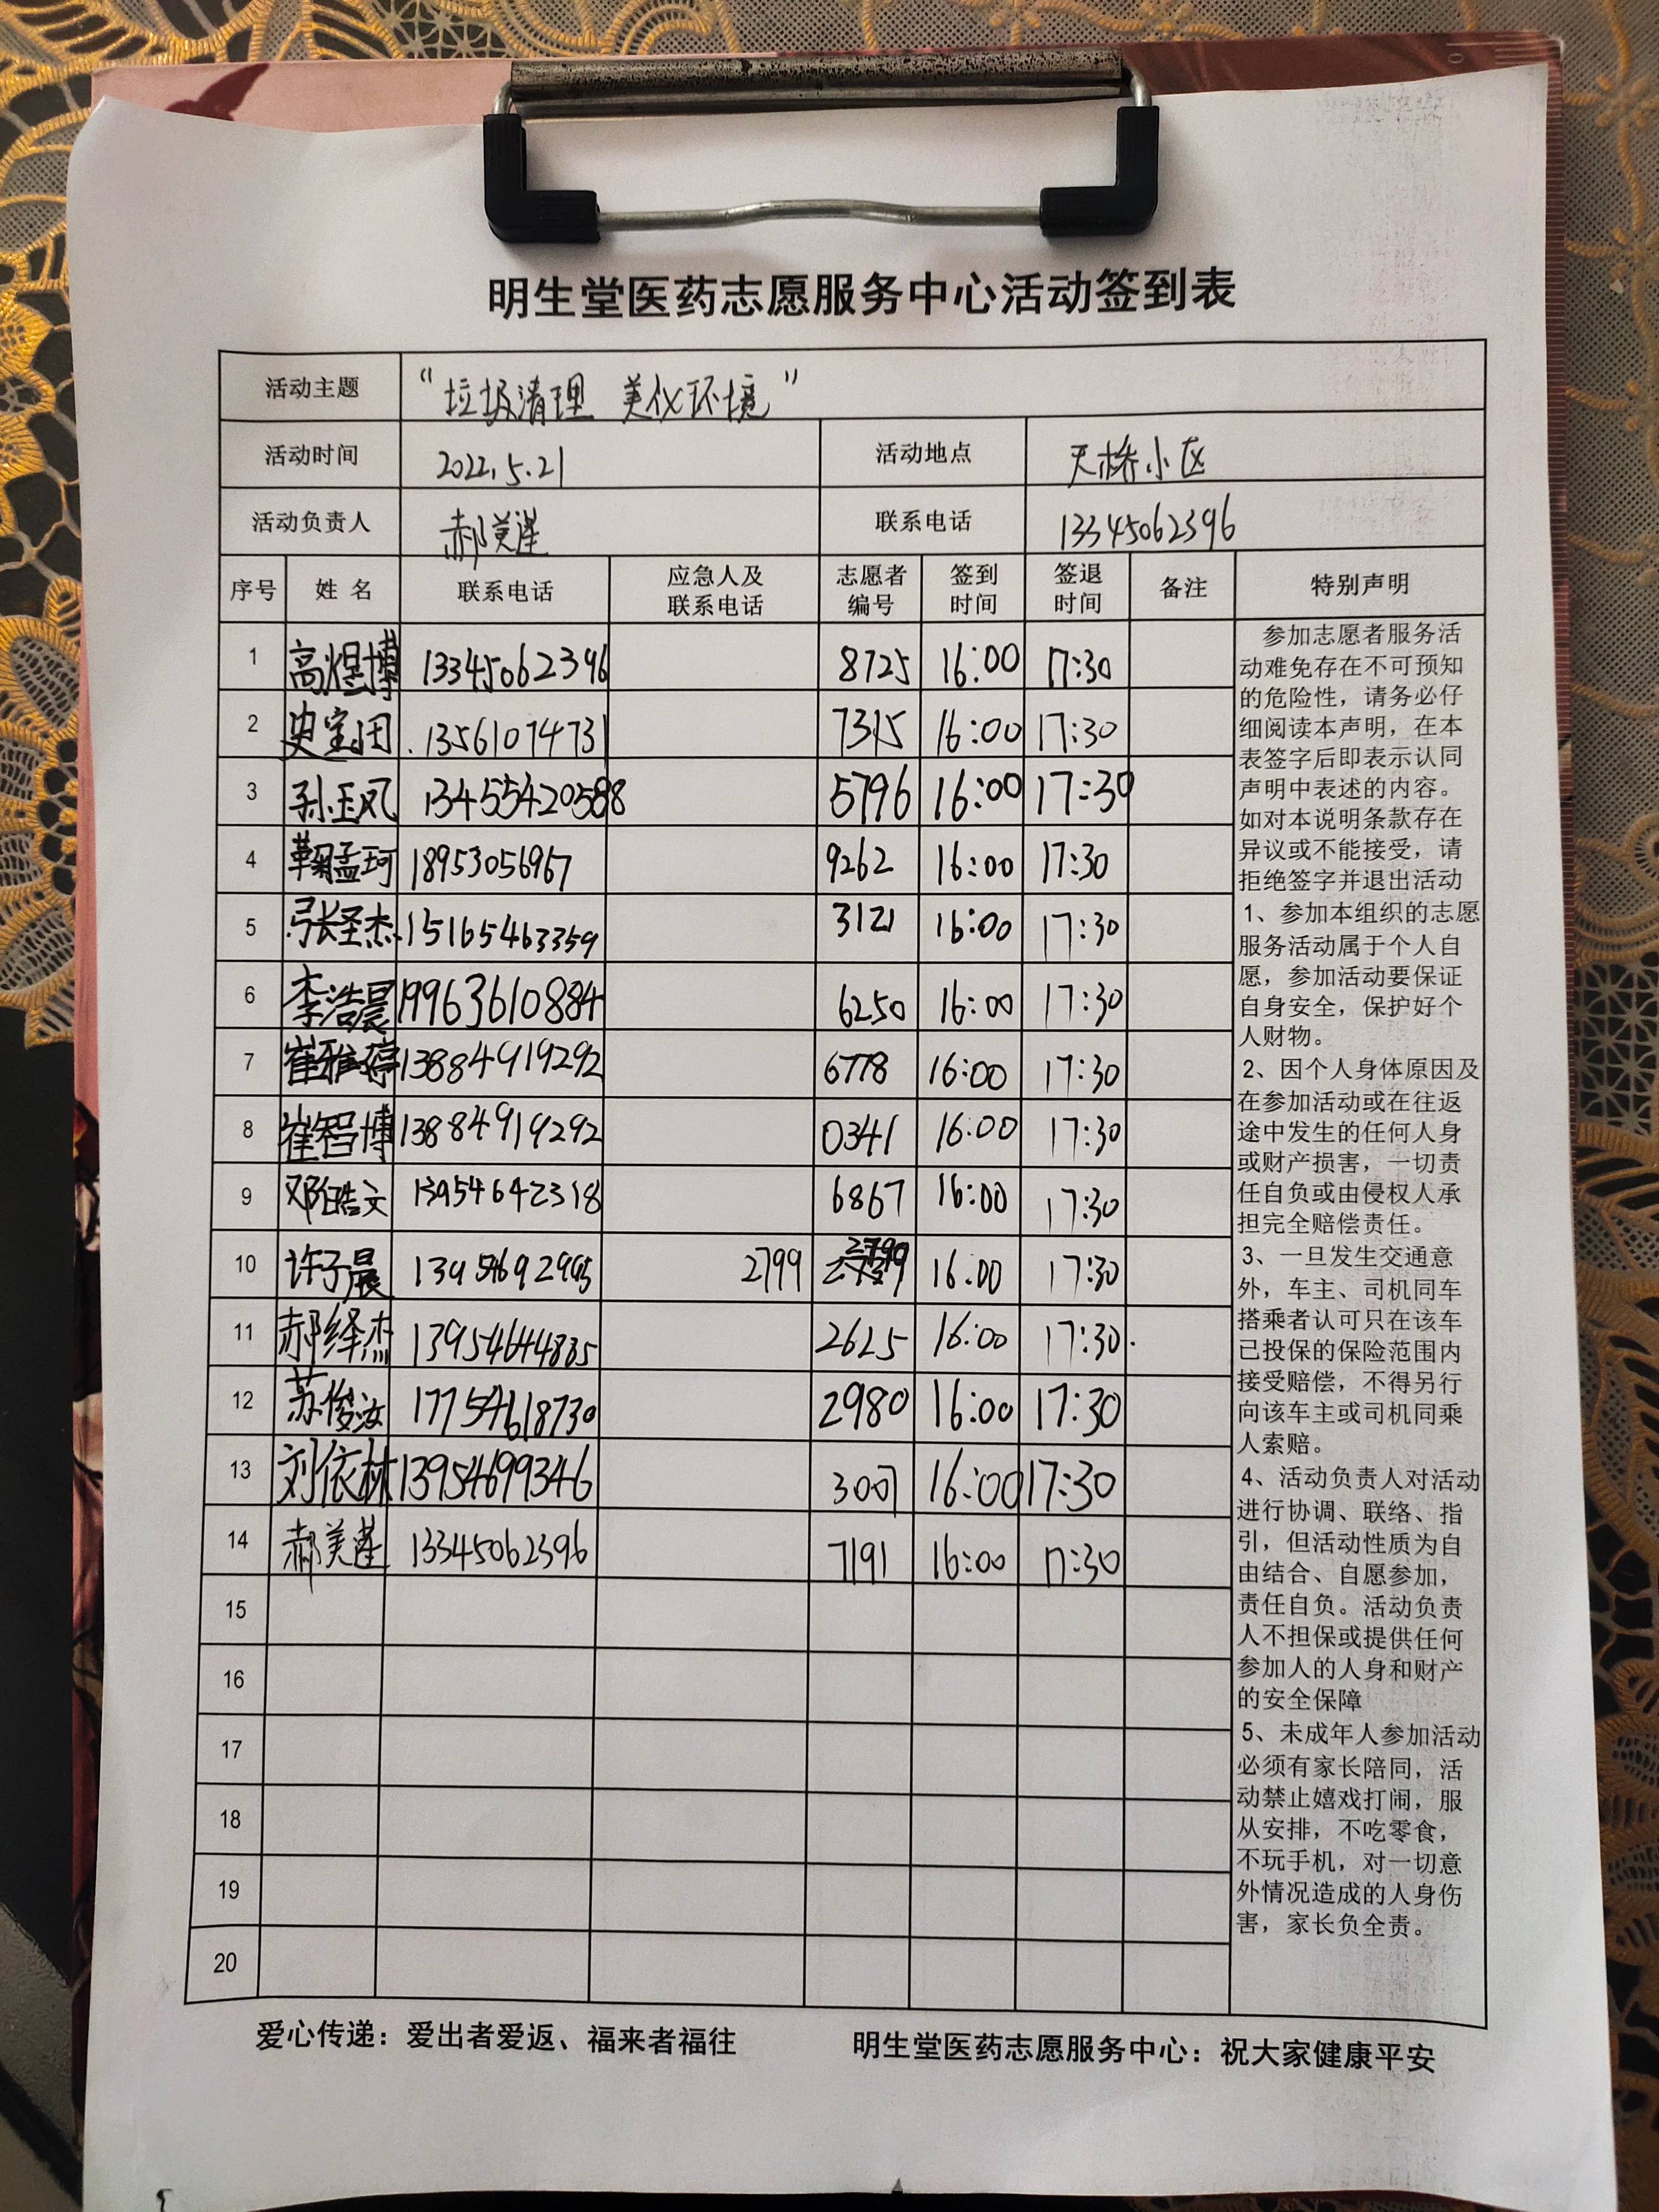 明生堂医药志愿服务中心活动签到表
活动主题 “垃圾清理 美化环境”
活动时间 2022.5.21 活动地点 天桥小区
活动负责人 郝美莲 联系电话 13345062396
序号 姓名 联系电话 应急人及联系电话 志愿者编号 签到时间 签退时间 备注 特别声明
1 高煜博 13345062396 8725 16:00 17:30
2 史宝田 13561074731 7315 16:00 17:30
3 孙玉凤 13455420588 5796 16:00 17:30
4 鞠孟珂 18953056967 9262 16:00 17:30
5 张圣杰 15165463359 3121 16:00 17:30
6 李浩晨 19963610884 6250 16:00 17:30
7 崔雅婷 13884919292 6778 16:00 17:30
8 崔智博 13884919292 0341 16:00 17:30
9 邓皓文 13954642318 6867 16:00 17:30
10 许子晨 2799 16:00 17:30
11 郝绎杰 13954644835 2625 16:00 17:30
12 苏俊汝 17754618730 2980 16:00 17:30
13 刘依林 13954699346 3007 16:00 17:30
14 郝美莲 13345062396 7191 16:00 17:30
15
16
17
18
19
20
参加志愿者服务活
动难免存在不可预知
的危险性，请务必仔
细阅读本声明，在本
表签字后即表示认同
声明中表述的内容。
如对本说明条款存在
异议或不能接受，请
拒绝签字并退出活动
1、参加本组织的志愿
服务活动属于个人自
愿，参加活动要保证
自身安全，保护好个
人财物。
2、因个人身体原因及
在参加活动或在往返
途中发生的任何人身
或财产损害，一切责
任自负或由侵权人承
担完全赔偿责任。
3、一旦发生交通意
外，车主、司机同车
搭乘者认可只在该车
已投保的保险范围内
接受赔偿，不得另行
向该车主或司机同乘
人索赔。
4、活动负责人对活动
进行协调、联络、指
引，但活动性质为自
由结合、自愿参加，
责任自负。活动负责
人不担保或提供任何
参加人的人身和财产
的安全保障
5、未成年人参加活动
必须有家长陪同，活
动禁止嬉戏打闹，服
从安排，不吃零食，
不玩手机，对一切意
外情况造成的人身伤
害，家长负全责。
爱心传递：爱出者爱返、福来者福往 明生堂医药志愿服务中心：祝大家健康平安